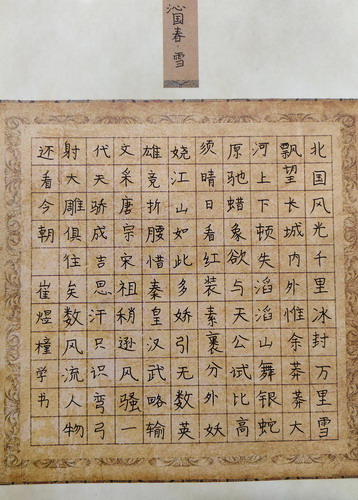 沁国春·雪
北国风光千里冰封万里雪
飘望长城内外惟余莽莽大
河上下顿失滔滔山舞银蛇
原驰蜡象欲与天公试比高
须晴日看红装素裹分外妖
娆江山如此多娇引无数英
雄竞折腰惜秦皇汉武略输
文采唐宗宋祖稍逊风骚一
代天骄成吉思汗只识弯弓
射大雕俱往矣数风流人物
还看今朝 崔煜橦学书